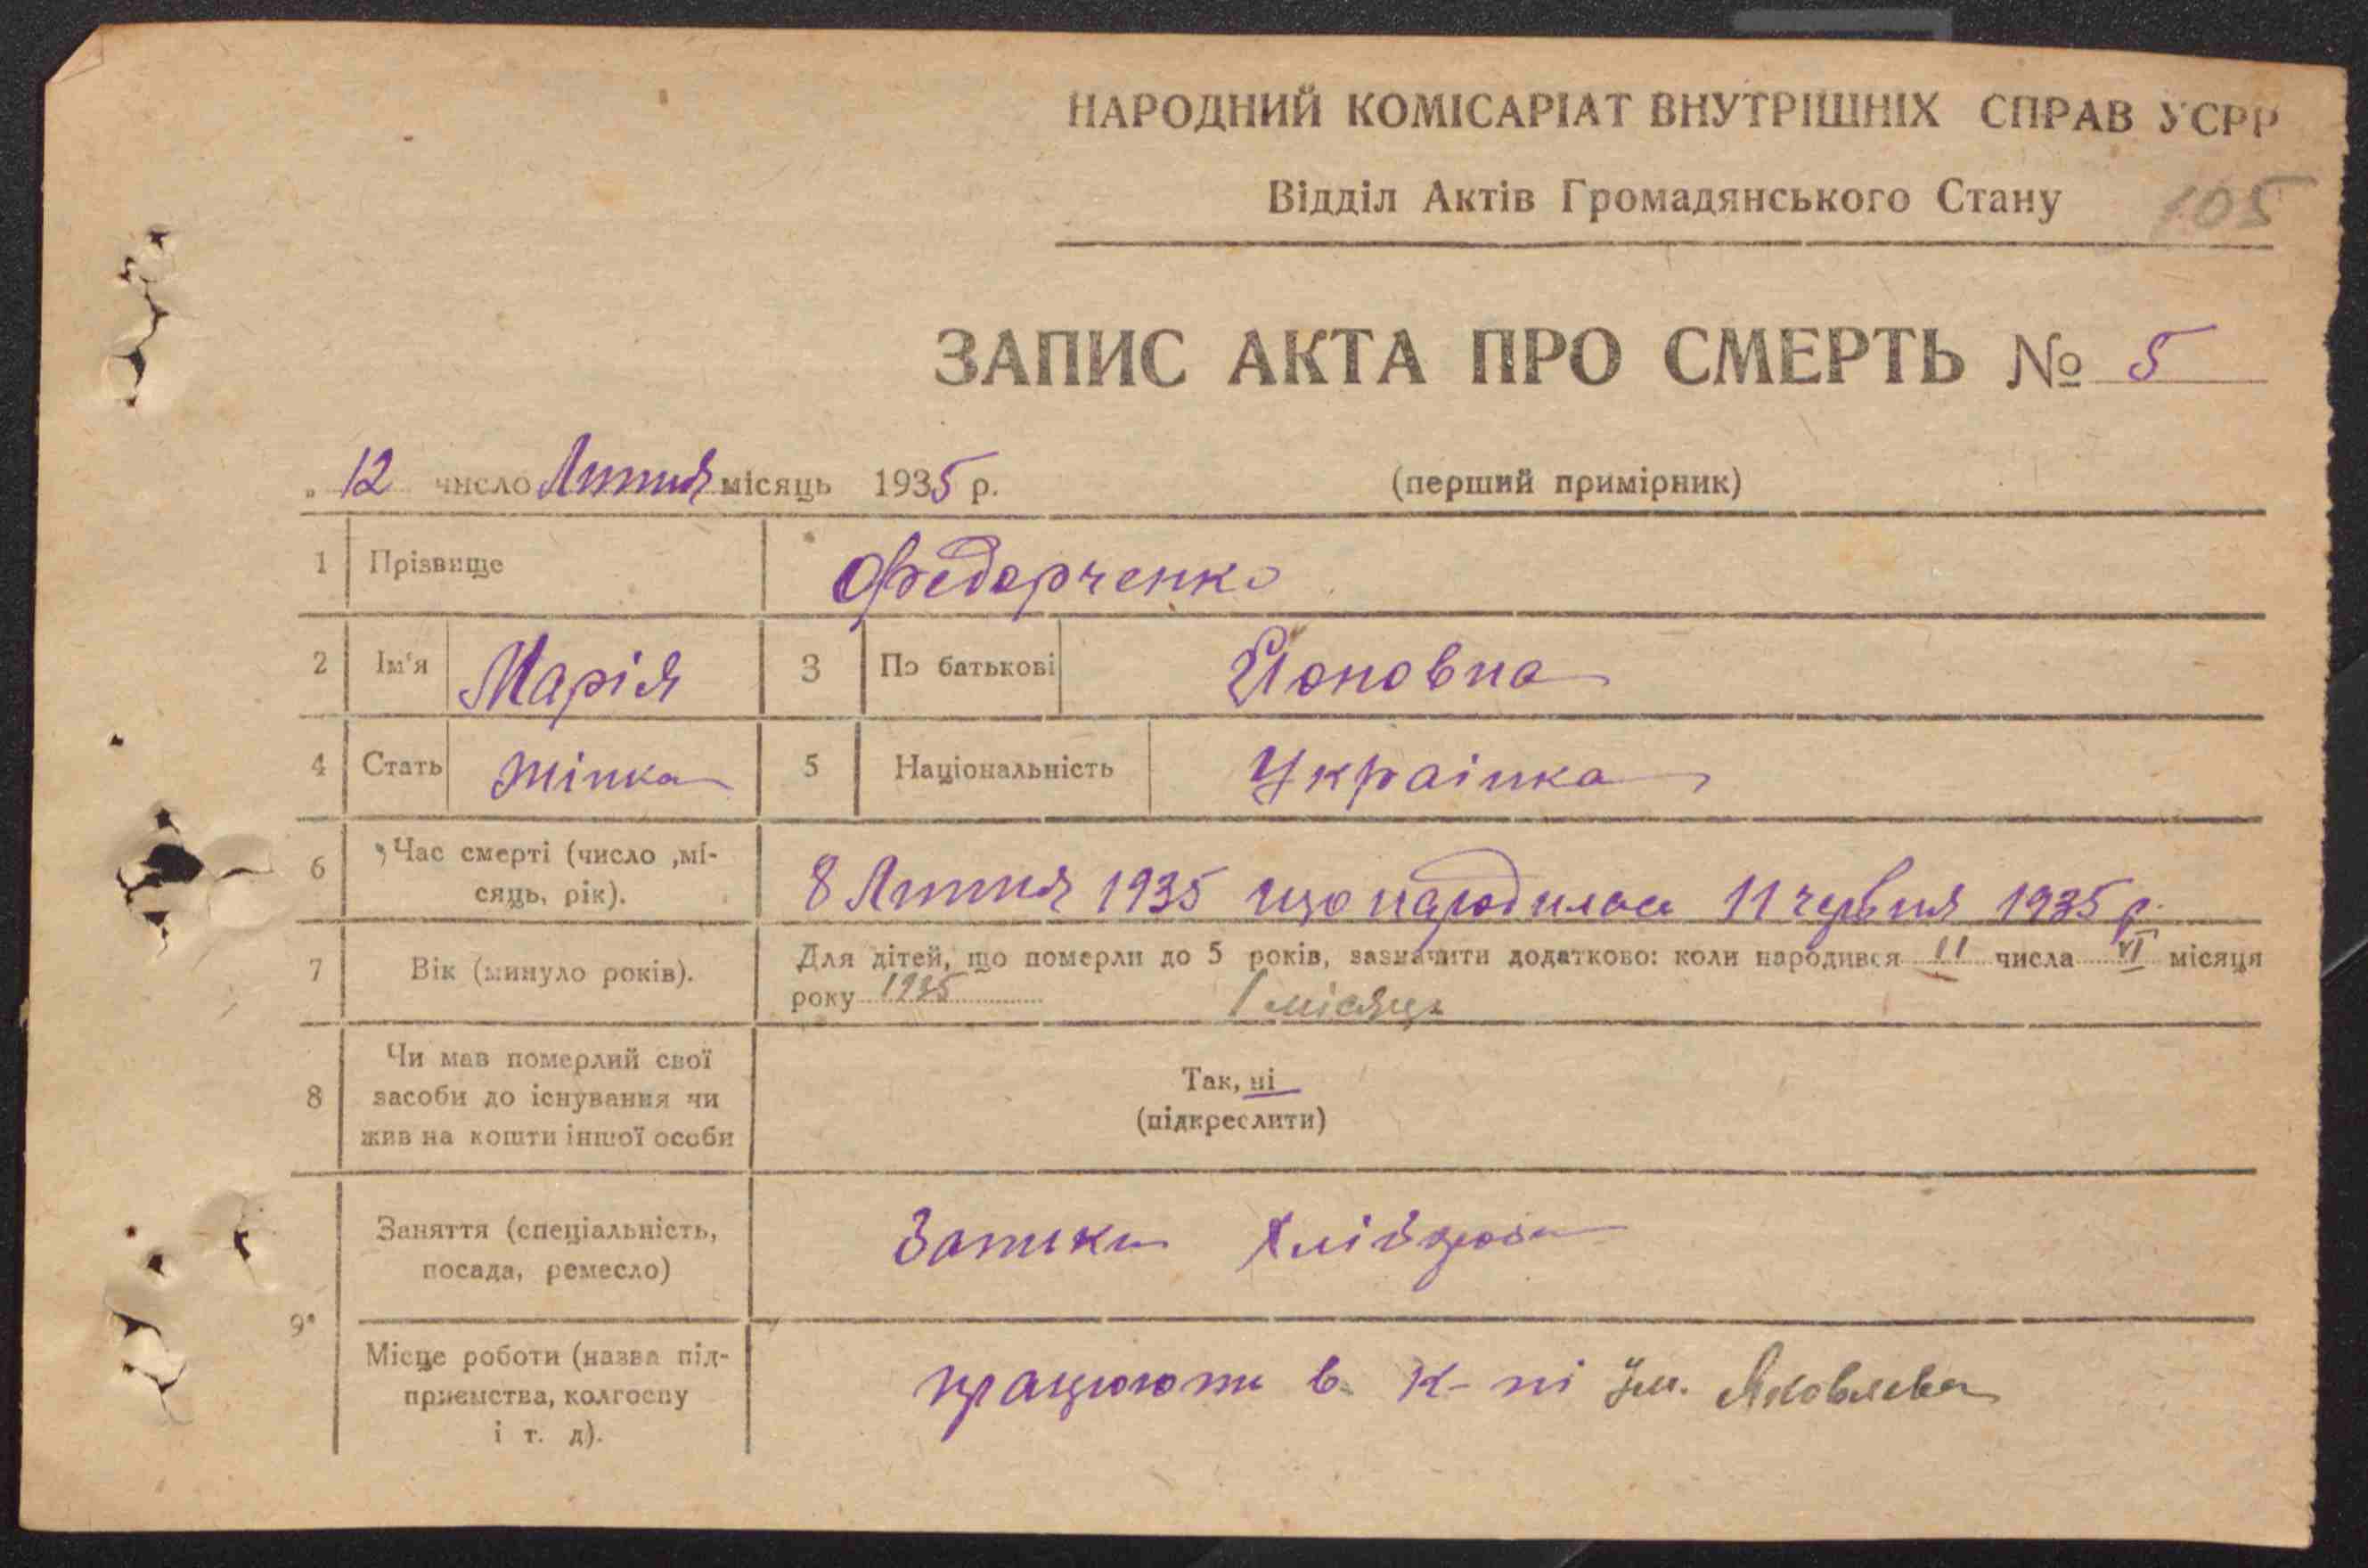 НАРОДНИЙ КОМІСАРІАТ ВНУТРІШНІХ СПРАВ УСРР
Відділ Актів Громадянського Стану 105
ЗАПИС АКТА ПРО СМЕРТЬ № 5
„ 12 число Липня місяць 1935 р. (перший примірник)
1 Прізвище Федорченко
2 Ім'я Марія 3 По батькові Йоновна
4 Стать жінка 5 Національність Українка
6 Час смерті (число ,мі-
сяць, рік).
8 Липня 1935 що народилась 11 червня 1935 р.
7 Вік (минуло років).
Для дітей, що померли до 5 років, зазначити додатково: коли народився 11 числа VI місяця
року 1935 1 місяць
8 Чи мав померлий свої
засоби до існування чи
жив на кошти іншої особи
Так, ні
(підкреслити)
9
Заняття (спеціальність,
посада, ремесло)
Хлібороби
Місце роботи (назва під-
приємства, колгоспу
і т. д).
працюють в к-пі Ім. Яковлева